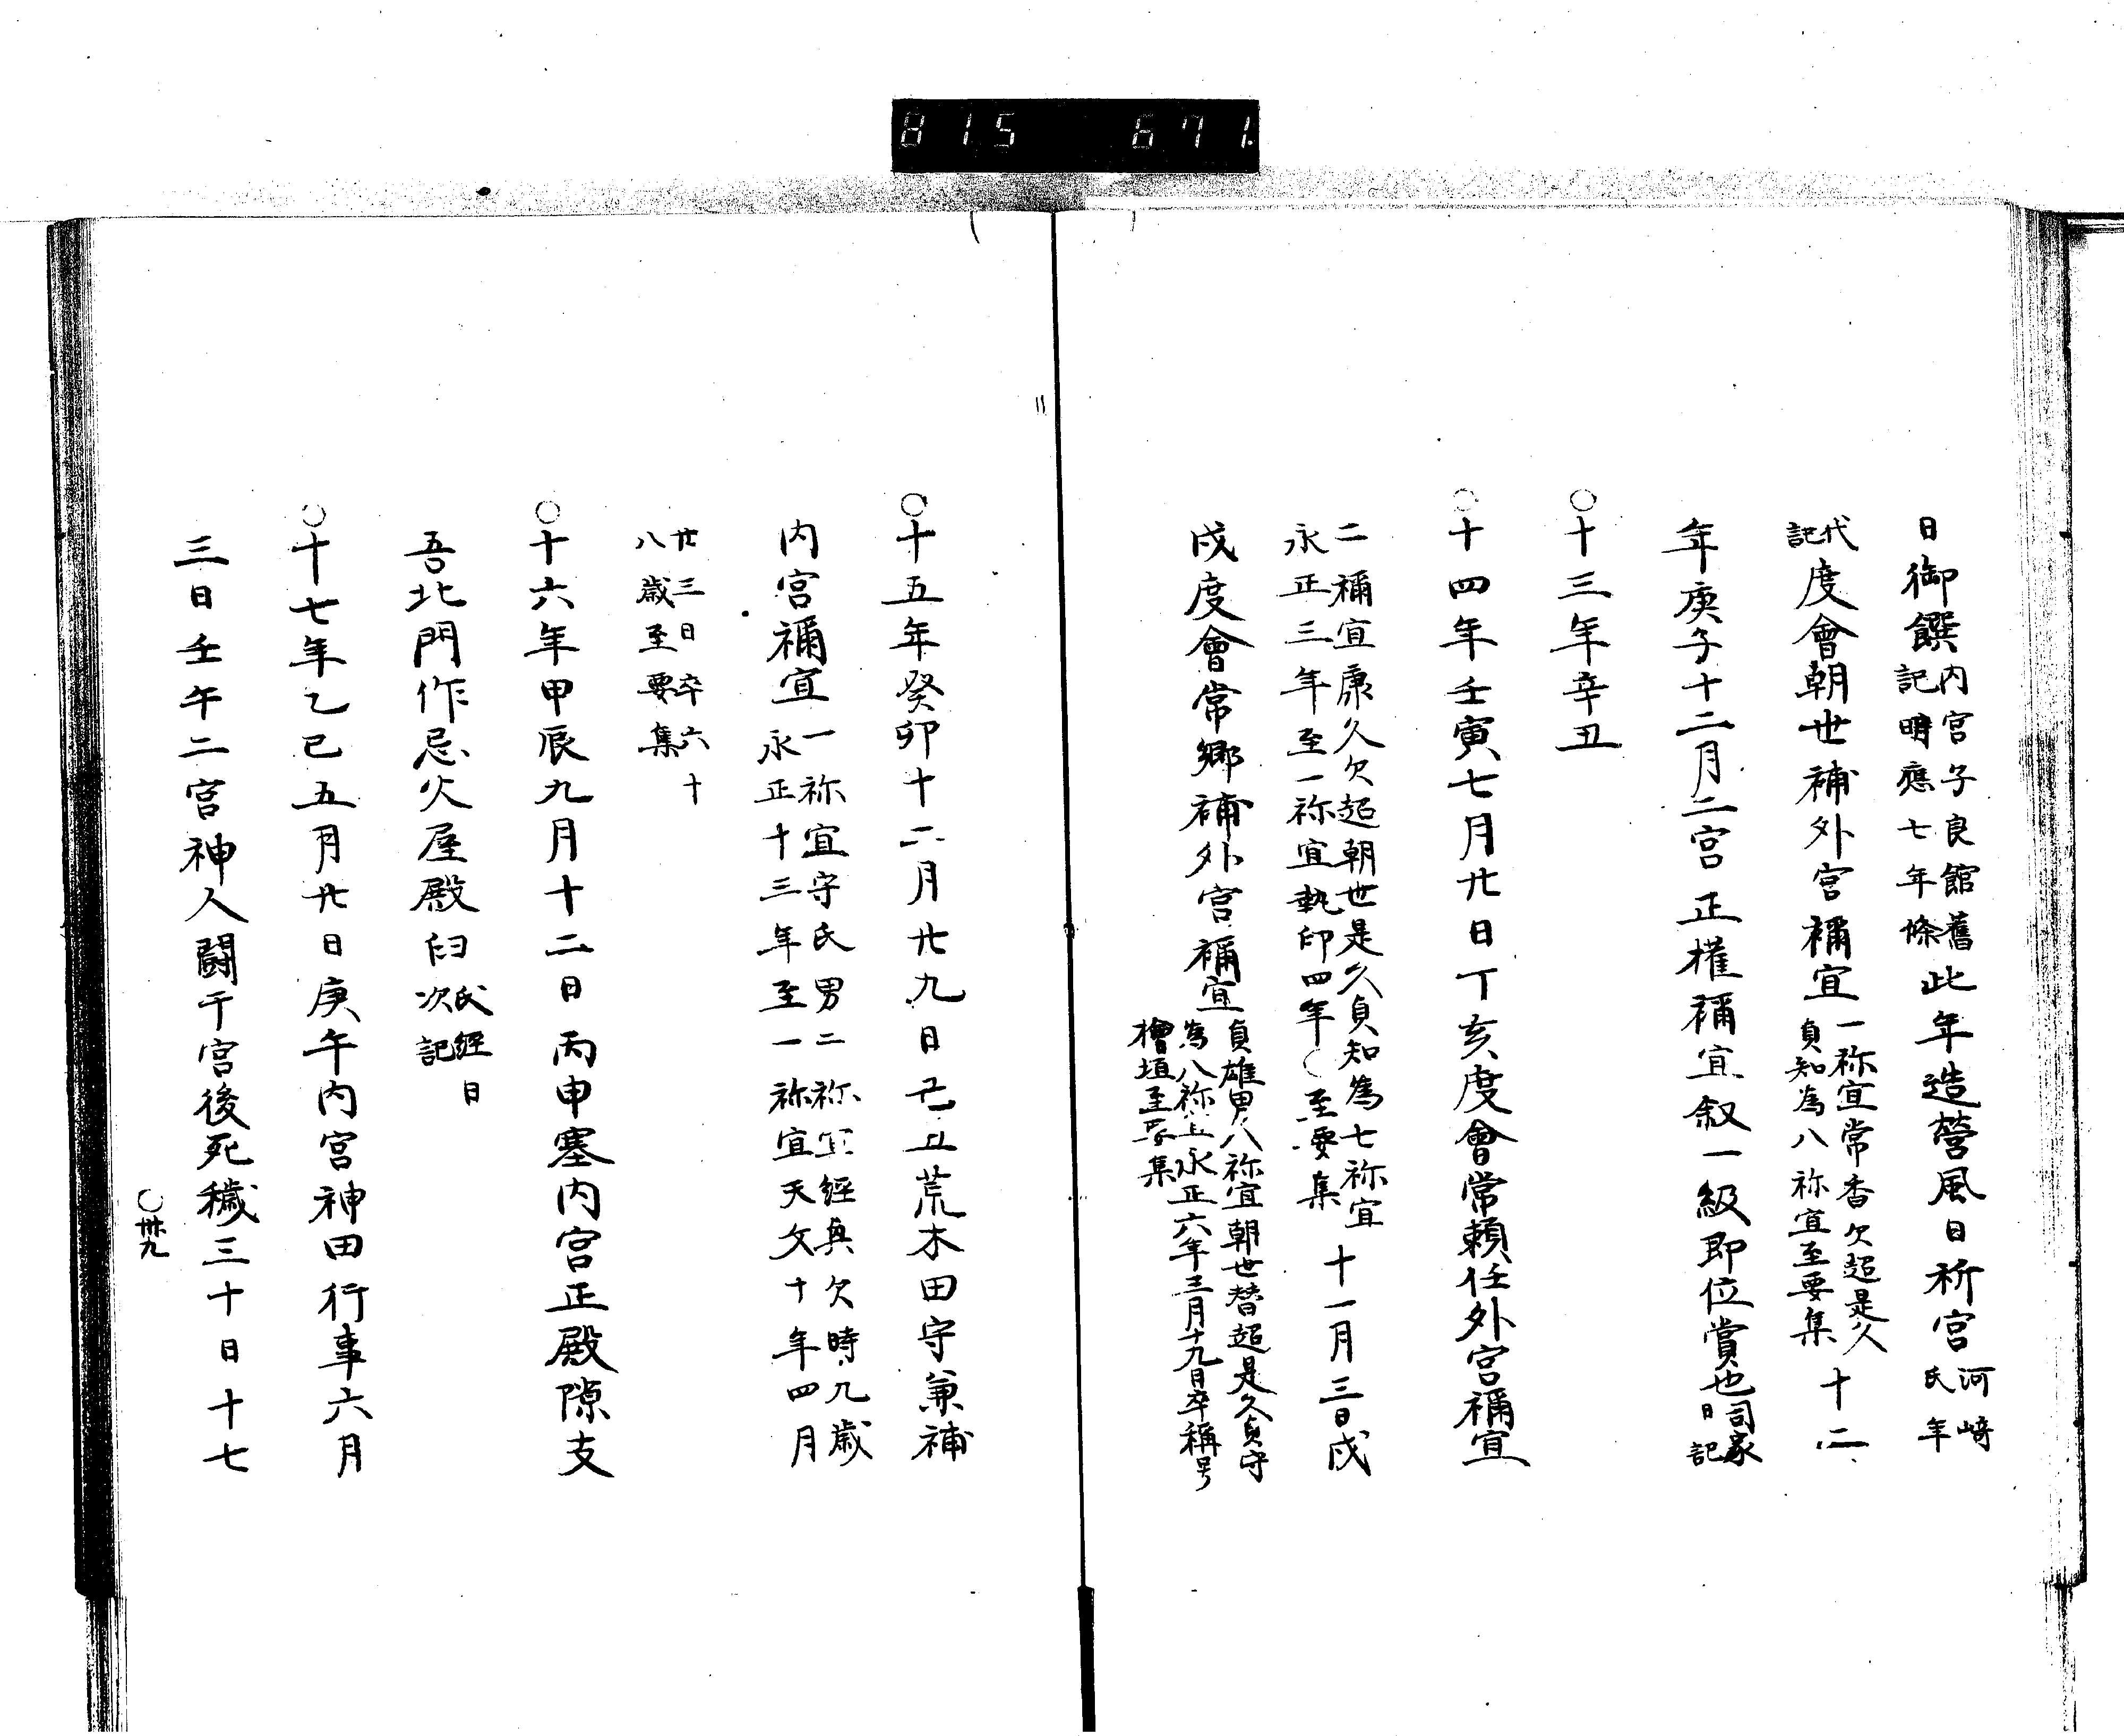 815 671.
日御饌内宮子良館舊
記明應七年條此年造営風日祈宮河﨑
氏年
代
記度會朝世補外宮禰宜一祢宜常香欠超是久
貞知為八祢宜至要集十二
年庚子十二月二宮正権禰宜叙一級即位賞也司家
日記
○十三年辛丑
○十四年壬寅七月廿日丁亥度會常頼任外宮禰宜
二禰宜康久欠超朝世是久貞知為七祢宜
永正三年至一祢宜執印四年○至要集十一月三日戌
戌度會常郷補外宮禰宜貞雄男八祢宜朝世替超是久貞守
為八祢宜永正六年三月十九日卒稱号
檜垣至要集
○十五年癸卯十二月廿九日丑荒木田守兼補
内宮禰宜一祢宜守氏男二祢宜經典欠時九歳
永正十三年至一祢宜天文十年四月
廿三日卒六十
八歳至要集
○十六年甲辰九月十二日丙申塞内宮正殿隙支
吾北門作忌火屋殿臼氏經日
次記
○十七年乙巳五月廿日庚午内宮神田行事六月
三日壬午二宮神人闘于宮後死穢三十日十七
○卌九